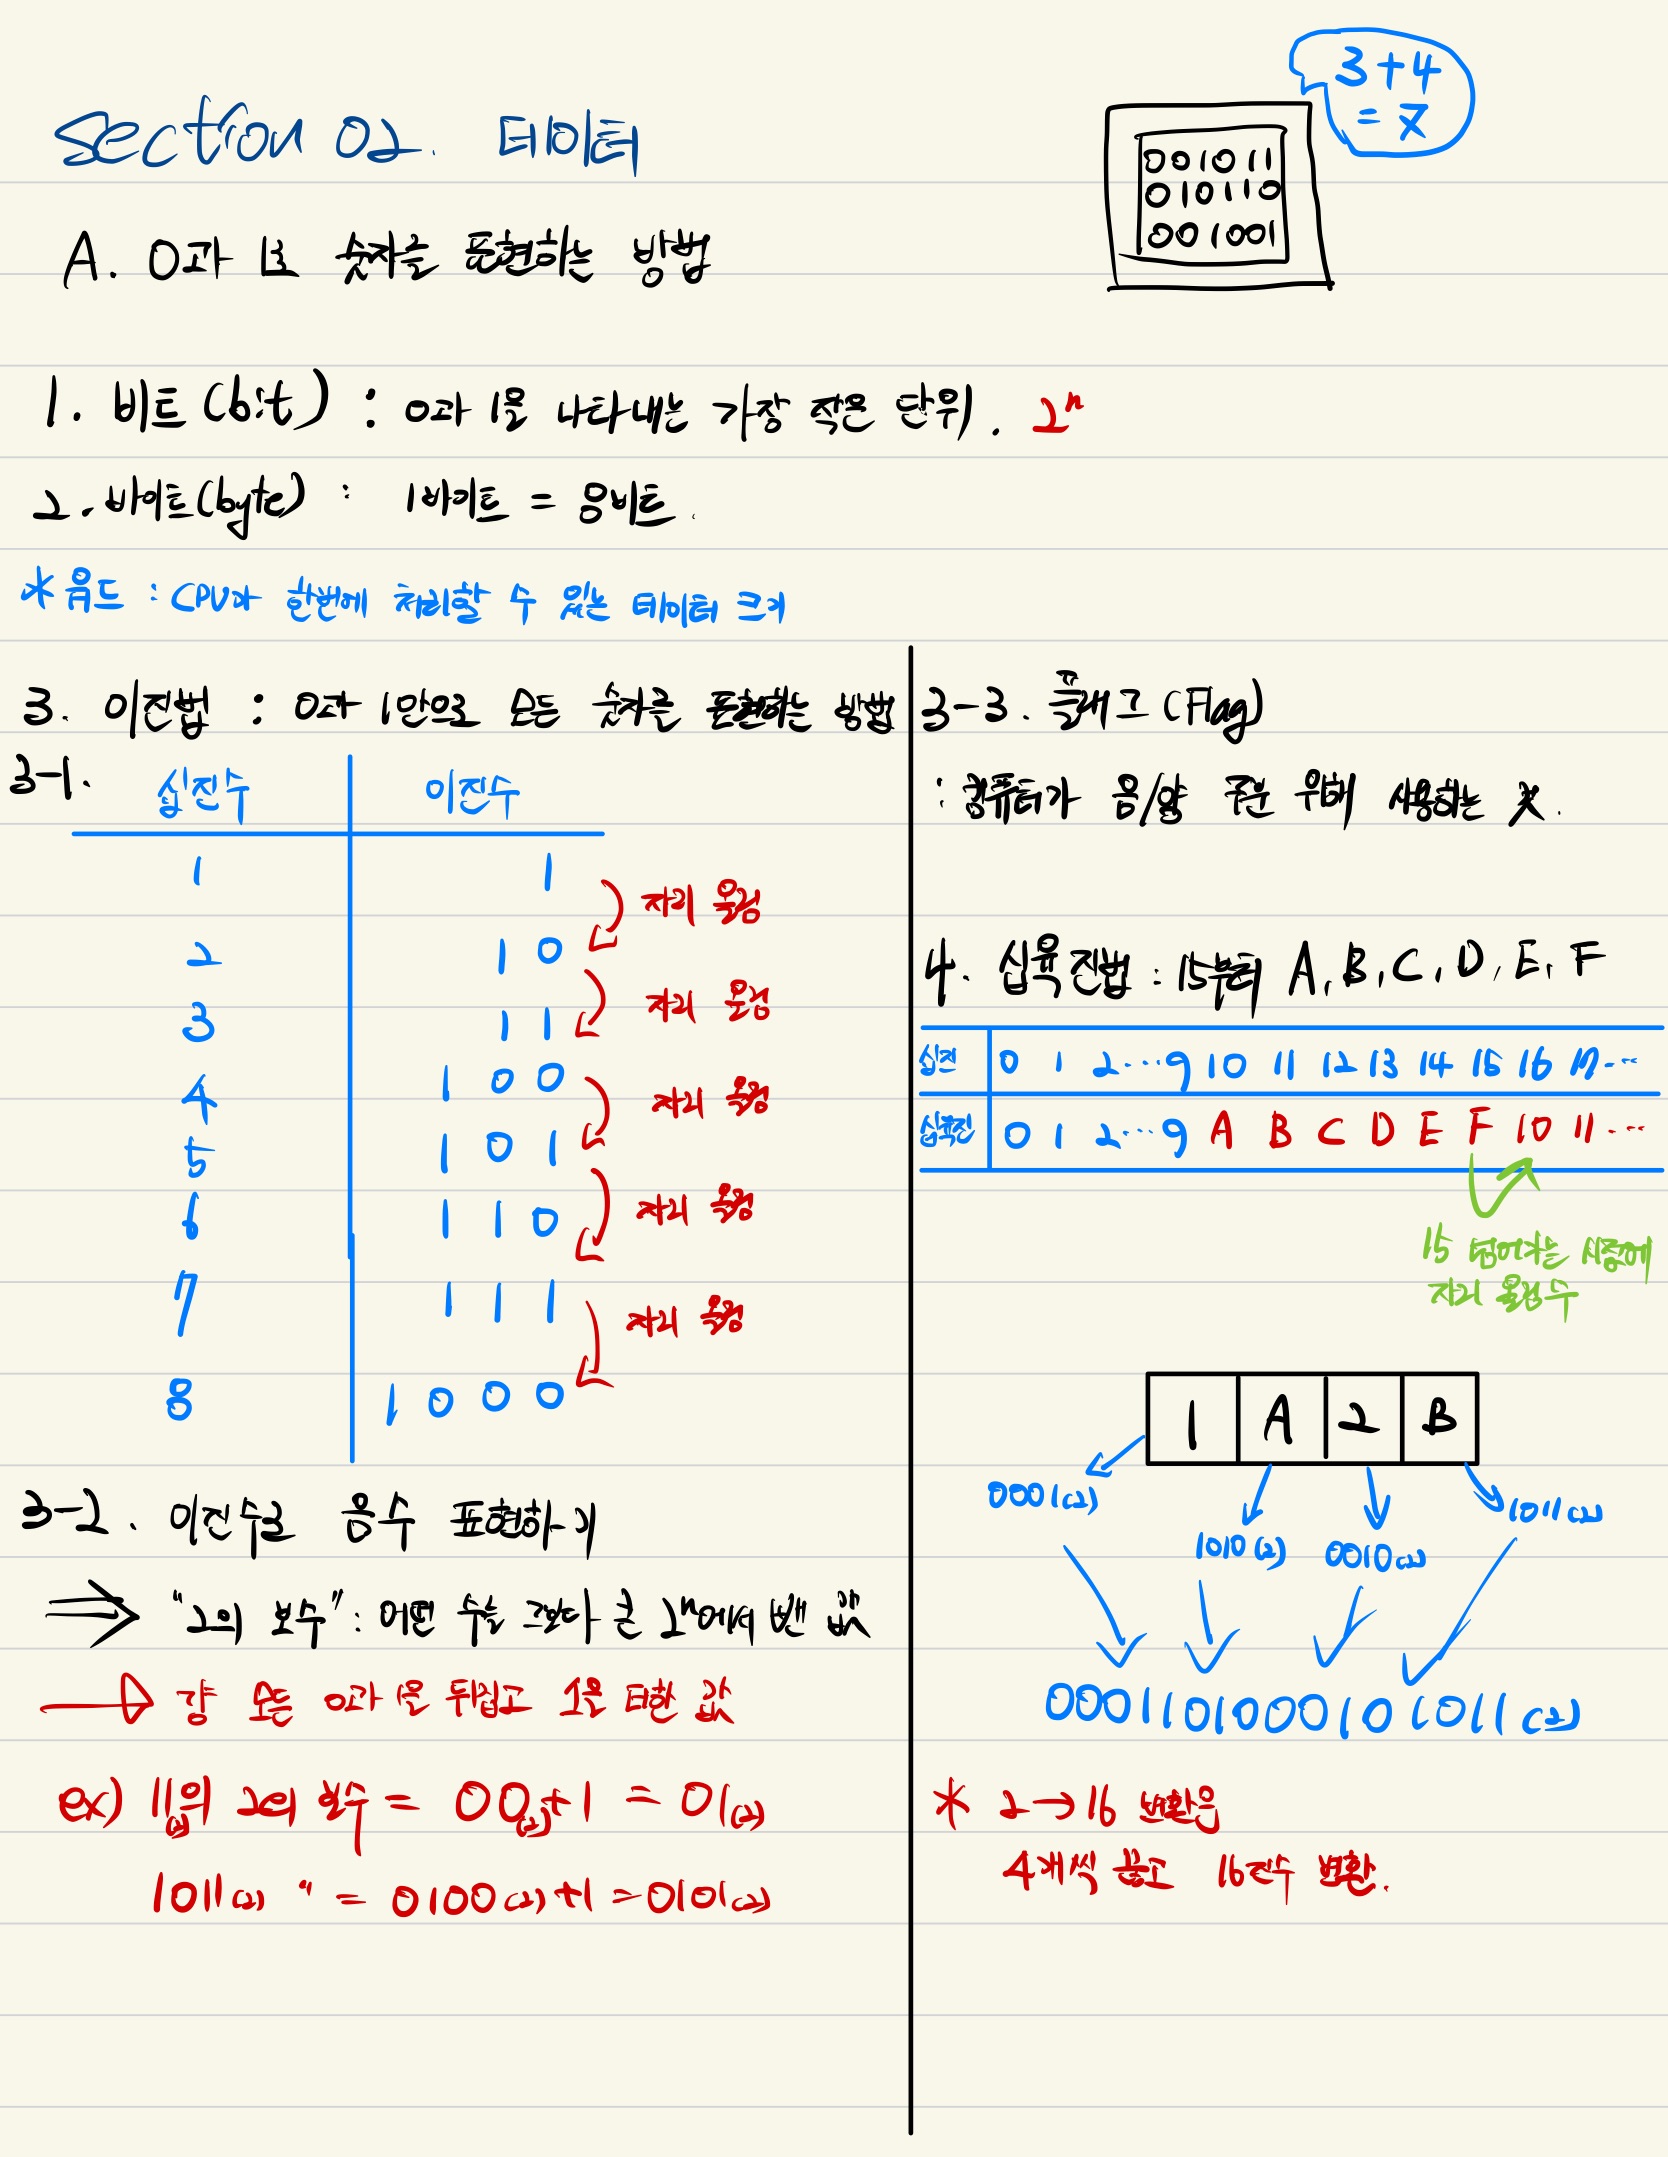 Section 02. 데이터
3+4
= 7
001011
010110
001001
A. 0과 1로 숫자를 표현하는 방법
1. 비트(bit) : 0과 1을 나타내는 가장 작은 단위. 2ⁿ
2. 바이트(byte) : 1바이트 = 8비트.
*워드 : CPU가 한번에 처리할 수 있는 데이터 크기
3. 이진법 : 0과 1만으로 모든 숫자를 표현하는 방법
3-1.
십진수 이진수
1 1
자리 올림
2 10
자리 올림
3 11
4 100
자리 올림
5 101
자리 올림
6 110
7 111
자리 올림
8 1000
3-2. 이진수로 음수 표현하기
⇒ "2의 보수" : 어떤 수를 그보다 큰 2ⁿ에서 뺀 값
→ 걍 모든 0과 1을 뒤집고 1을 더한 값
ex) 11(2)의 2의 보수 = 00(2)+1 = 01(2)
1011(2) " = 0100(2)+1 = 0101(2)
3-3. 플래그 (Flag)
: 컴퓨터가 음/양 구분 위해 사용하는 X.
4. 십육진법 : 15부터 A, B, C, D, E, F
십진 0 1 2 ... 9 10 11 12 13 14 15 16 17 ...
십육진 0 1 2 ... 9 A B C D E F 10 11 ...
15 넘어가는 시점에
자리 올림수
1 A 2 B
0001(2) 1010(2) 0010(2) 1011(2)
0001101000101011(2)
* 2→16 변환은
4개씩 끊고 16진수 변환.